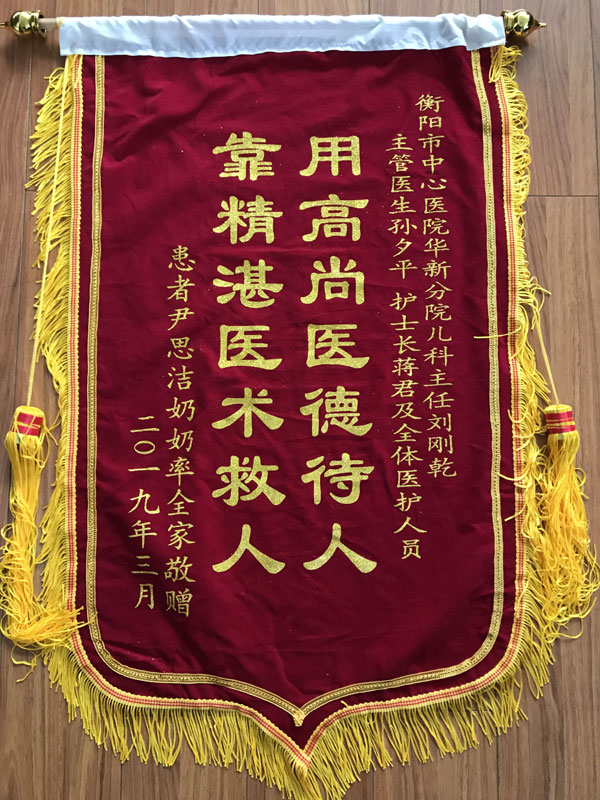 衡阳市中心医院华新分院儿科主任刘刚乾
主管医生孙夕平 护士长蒋君及全体医护人员
用高尚医德待人
靠精湛医术救人
患者尹思洁奶奶率全家敬赠
二〇一九年三月